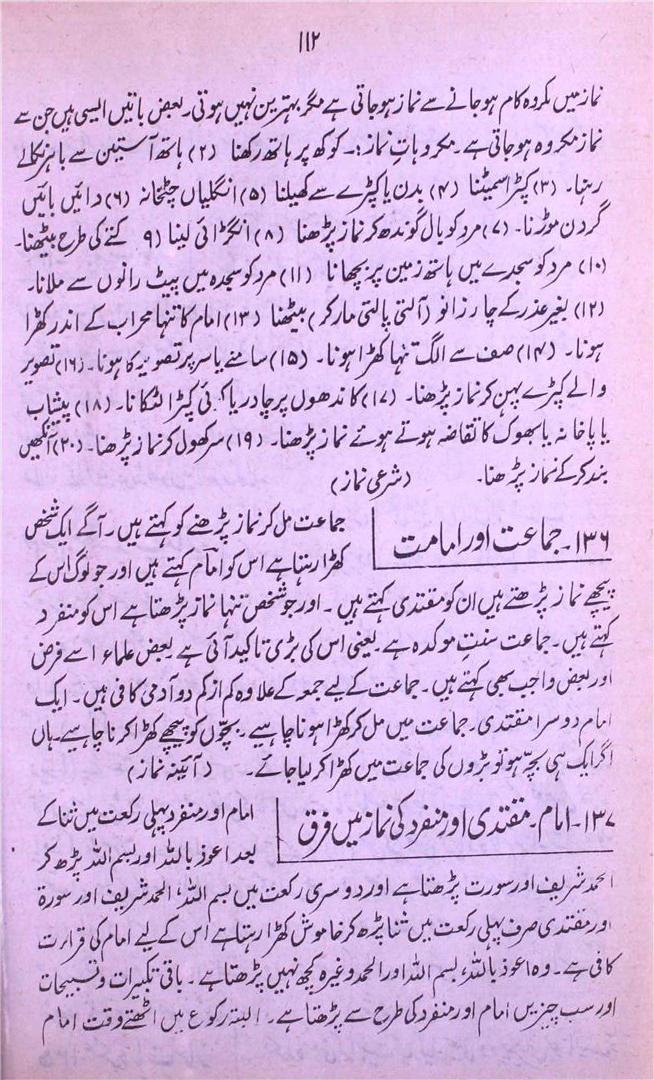 ۱۱۲
نماز میں مکروہ کام ہو جانے سے نماز ہو جاتی ہے مگر بہترین نہیں ہوتی۔ بعض باتیں ایسی ہیں جن سے
نماز مکروہ ہو جاتی ہے۔ مکروہات نماز :۔ کوکھ پر ہاتھ رکھنا (۲) ہاتھ آستین سے باہر نکالے
رہنا۔ (۳) کپڑا سمیٹنا (۴) بدن یا کپڑے سے کھیلنا (۵) انگلیاں چٹخانہ (۶) دائیں بائیں
گردن موڑنا۔ (۷) مرد کو بال گوندھ کر نماز پڑھنا (۸) انگڑائی لینا (۹ کتے کی طرح بیٹھنا۔
(۱۰) مرد کو سجدے میں ہاتھ زمین پر بچھانا (۱۱) مرد کو سجدہ میں پیٹ رانوں سے ملانا۔
(۱۲) بغیر عذر کے چار زانو (آلتی پالتی مار کر) بیٹھنا (۱۳) امام کا تنہا محراب کے اندر کھڑا
ہونا۔ (۱۴) صف سے الگ تنہا کھڑا ہونا۔ (۱۵) سامنے یا سر پر تصویر کا ہونا۔ (۱۶) تصویر
والے کپڑے پہن کر نماز پڑھنا۔ (۱۷) کاندھوں پر چادر یا کوئی کپڑا لٹکانا۔ (۱۸) پیشاب
یا پاخانہ یا بھوک کا تقاضہ ہوتے ہوئے نماز پڑھنا۔ (۱۹) سر کھول کر نماز پڑھنا۔ (۲۰) آنکھیں
بند کر کے نماز پڑھنا۔ (شرعی نماز)
۱۳۶۔ جماعت اور امامت
جماعت مل کر نماز پڑھنے کو کہتے ہیں۔ آگے ایک شخص
کھڑا رہتا ہے اس کو امام کہتے ہیں اور جو لوگ اس کے
پیچھے نماز پڑھتے ہیں ان کو مقتدی کہتے ہیں۔ اور جو شخص تنہا نماز پڑھتا ہے اس کو منفرد
کہتے ہیں۔ جماعت سنت موکدہ ہے یعنی اس کی بڑی تاکید آئی ہے بعض علماء اسے فرض
اور بعض واجب بھی کہتے ہیں۔ جماعت کے لیے جمعہ کے علاوہ کم از کم دو آدمی کافی ہیں۔ ایک
امام دوسرا مقتدی۔ جماعت میں مل کر کھڑا ہونا چاہیے۔ بچوں کو پیچھے کھڑا کرنا چاہیے۔ ہاں
اگر ایک ہی بچہ ہو تو بڑوں کی جماعت میں کھڑا کر لیا جائے۔ (آئینہ نماز)
۱۳۷۔ امام۔ مقتدی اور منفرد کی نماز میں فرق
امام اور منفرد پہلی رکعت میں ثنا کے
بعد اعوذ باللہ اور بسم اللہ پڑھ کر
الحمد شریف اور سورت پڑھتا ہے اور دوسری رکعت میں بسم اللہ، الحمد شریف اور سورۃ
اور مقتدی صرف پہلی رکعت میں ثنا پڑھ کر خاموش کھڑا رہتا ہے اس کے لیے امام کی قرارت
کافی ہے۔ وہ اعوذ باللہ، بسم اللہ اور الحمد وغیرہ کچھ نہیں پڑھتا ہے۔ باقی تکبیرات و تسبیحات
اور سب چیزیں امام اور منفرد کی طرح سے پڑھتا ہے۔ البتہ رکوع میں اٹھتے وقت امام